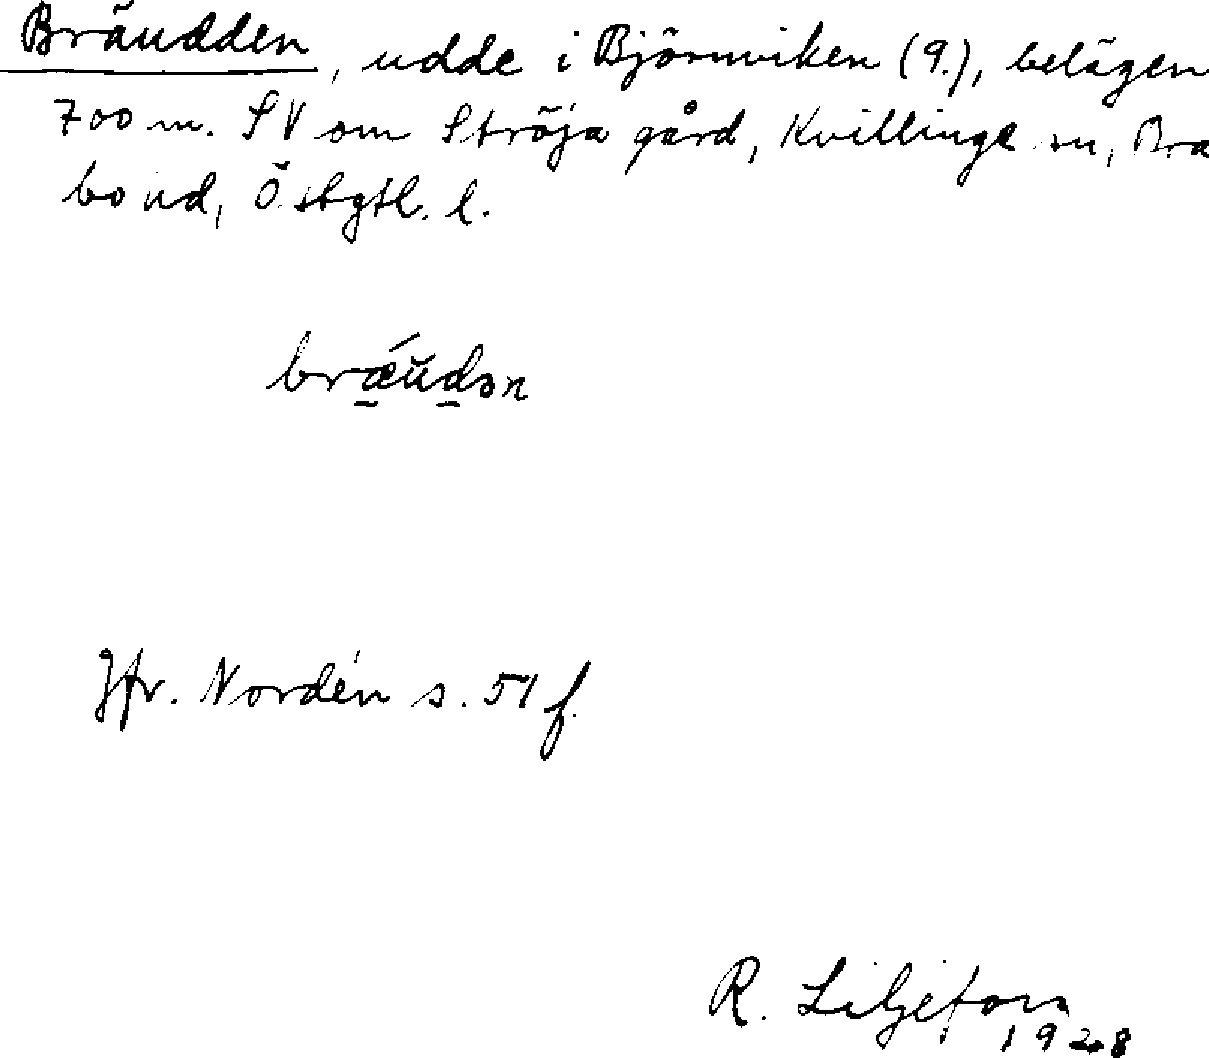 Bräudden, udde i Björnviken (9.), belägen
700 m. SV om Ströja gård, Kvillinge sn, Bra
bo hd, Östgtl. l.
brǽ̱ŭḏən
Jfr. Nordén s. 51 f.
R. Liljefors
1928